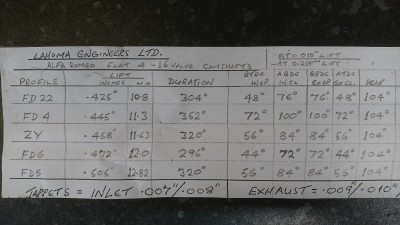 LAHOMA ENGINEERS LTD.
ALFA ROMEO FLAT 4 - 16 VALVE CAMSHAFTS
AT 0.010" LIFT
PROFILE LIFT INCHES MM DURATION BTDC INOP ABDC INCL BBDC EXOP ATDC EXCL PEAK
FD22 .425" 10.8 304° 48° 76° 76° 48° 104°
FD4 .445" 11.3 352° 72° 100° 100° 72° 104°
ZY .458" 11.63 320° 56° 84° 84° 56° 104°
FD6 .472" 12.0 296° 44° 72° 72° 44° 104°
FD5 .505" 12.82 320° 56° 84° 84° 56° 104°
TAPPETS = INLET .007"/.008" EXHAUST = .009"/.010"